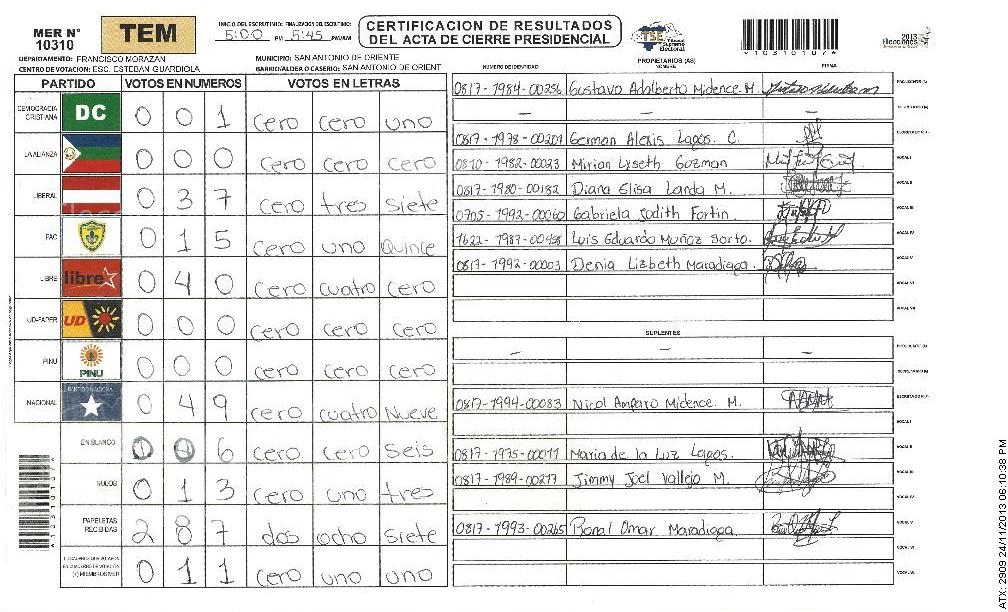 MER N° 10310
TEM
INICIO DEL ESCRUTINIO: 5:00 PM FINALIZACION DEL ESCRUTINIO: 5:45 PM/AM
CERTIFICACION DE RESULTADOS
DEL ACTA DE CIERRE PRESIDENCIAL
TSE Tribunal Supremo Electoral
2013 Elecciones
DEPARTAMENTO: FRANCISCO MORAZAN MUNICIPIO: SAN ANTONIO DE ORIENTE
CENTRO DE VOTACION: ESC. ESTEBAN GUARDIOLA BARRIO/ALDEA O CASERIO: SAN ANTONIO DE ORIENT
PARTIDO VOTOS EN NUMEROS VOTOS EN LETRAS
DEMOCRACIA CRISTIANA DC 0 0 1 cero cero uno
LA ALIANZA 0 0 0 cero cero cero
LIBERAL 0 3 7 cero tres siete
PAC 0 1 5 cero uno Quince
LIBRE libre 0 4 0 cero cuatro cero
UD-FAPER UD 0 0 0 cero cero cero
PINU PINU 0 0 0 cero cero cero
NACIONAL 0 4 9 cero cuatro Nueve
EN BLANCO 0 0 6 cero cero seis
NULOS 0 1 3 cero uno tres
PAPELETAS RECIBIDAS 2 8 7 dos ocho siete
(+) MIEMBROS MER 0 1 1 cero uno uno
NUMERO DE IDENTIDAD PROPIETARIOS (AS) NOMBRE FIRMA
0817-1984-00256 Gustavo Adalberto Midence M. PRESIDENTE (A)
— — — SECRETARIO (A)
0817-1978-00201 German Alexis Lagos. C. ESCRUTADOR (A)
0810-1982-00023 Mirian Lyseth Guzman VOCAL I
0817-1980-00182 Diana Elisa Landa M. VOCAL II
0705-1992-00060 Gabriela Judith Fortin. VOCAL III
1622-1987-00458 Luis Eduardo Muñoz Sorto. VOCAL IV
0817-1992-00003 Denia Lizbeth Maradiaga. VOCAL V
VOCAL VI
VOCAL VII
SUPLENTES
— — — PRESIDENTE (A)
SECRETARIO (A)
0817-1994-00083 Nicol Amparo Midence. M. ESCRUTADOR (A)
VOCAL I
0817-1975-00011 Maria de la Luz Lagos. VOCAL II
0817-1989-00217 Jimmy Joel Vallejo M. VOCAL III
VOCAL IV
0817-1993-00265 Ronal Omar Maradiaga. VOCAL V
VOCAL VI
VOCAL VII
ATX: 2909 24/11/2013 06:10:38 PM